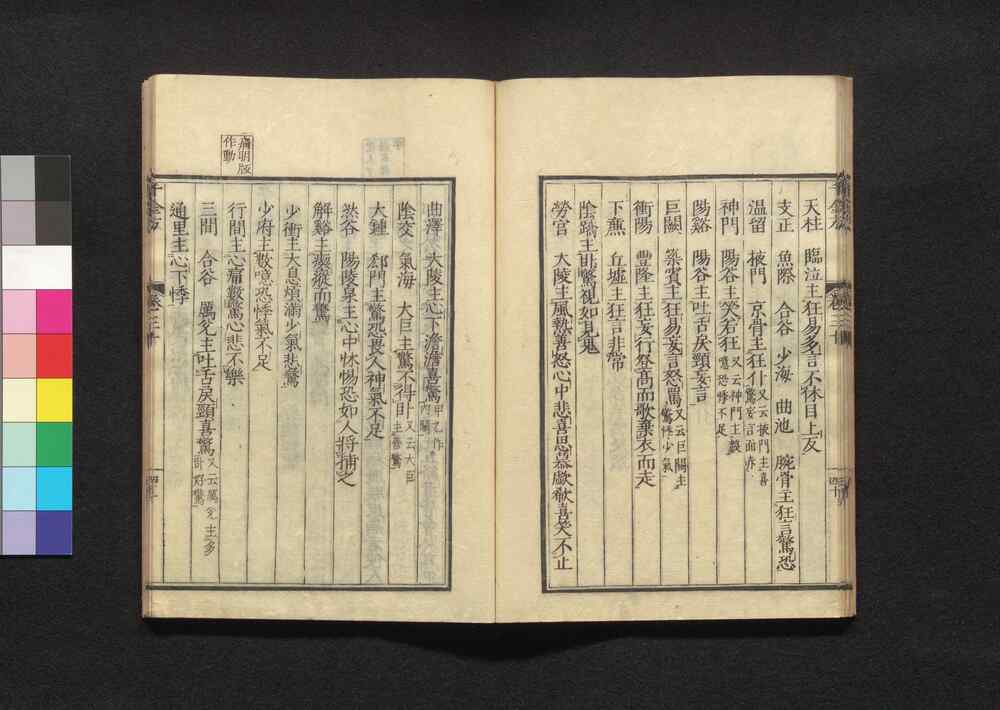 天柱　臨泣主狂易多言不休目上反
支正　魚際　合谷　少海　曲池　腕骨主狂言驚恐
温留　掖門　京骨主狂仆又云掖門主喜驚妄言面赤
神門　陽谷主笑若狂又云神門主數噫恐悸不足
陽谿　陽谷主吐舌戾頸妄言
巨闕　築賓主狂易妄言怒罵又云巨闕主驚悸少氣
衝陽　豐隆主狂妄行登高而歌棄衣而走
下廉　丘墟主狂言非常
陰蹻主卧驚視如見鬼
勞宮　大陵主風熱善怒心中悲喜思慕歔欷喜笑不止
曲澤　大陵主心下澹澹喜驚甲乙作内關
陰交　氣海　大巨主驚不得卧又云大巨主善驚
大鍾　郄門主驚恐畏人神氣不足
然谷　陽陵泉主心中怵惕恐如人將捕之
解谿主瘈瘲而驚
少衝主大息煩滿少氣悲驚
少府主數噫恐悸氣不足
行間主心痛數驚心悲不樂
三間　合谷　厲兌主吐舌戾頸喜驚又云厲兌主多卧好驚
通里主心下悸
作動